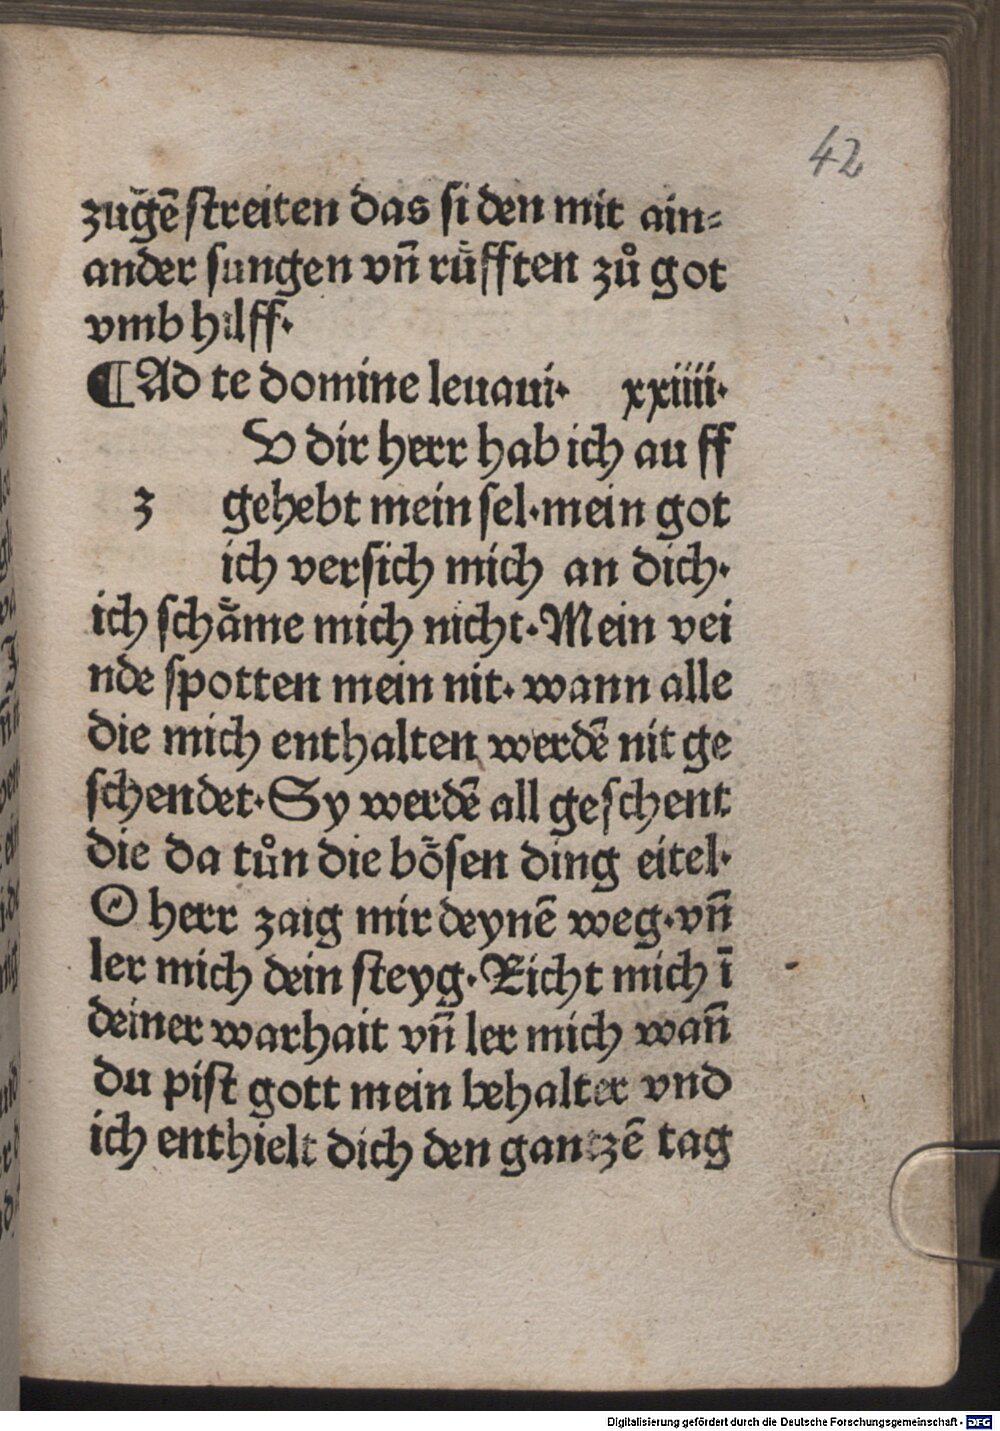 42
zug̃ẽ streiten das si den mit ain⸗
ander sungen vñ rüfften zů got
vmb hilff·
¶Ad te domine leuaui· xxiiii·
V dir herr hab ich au ff
z gehebt mein sel·mein got
ich versich mich an dich·
ich schäme mich nicht·Mein vei
nde spotten mein nit·wann alle
die mich enthalten werdẽ nit ge
schendet·Sy werdẽ all geschent
die da tůn die bösen ding eitel·
O herr zaig mir deynẽ weg·vñ
ler mich dein steyg·Richt mich ĩ
deiner warhait vñ ler mich wañ
du pist gott mein behalter vnd
ich enthielt dich den gantzẽ tag
Digitalisierung gefördert durch die Deutsche Forschungsgemeinschaft - DFG